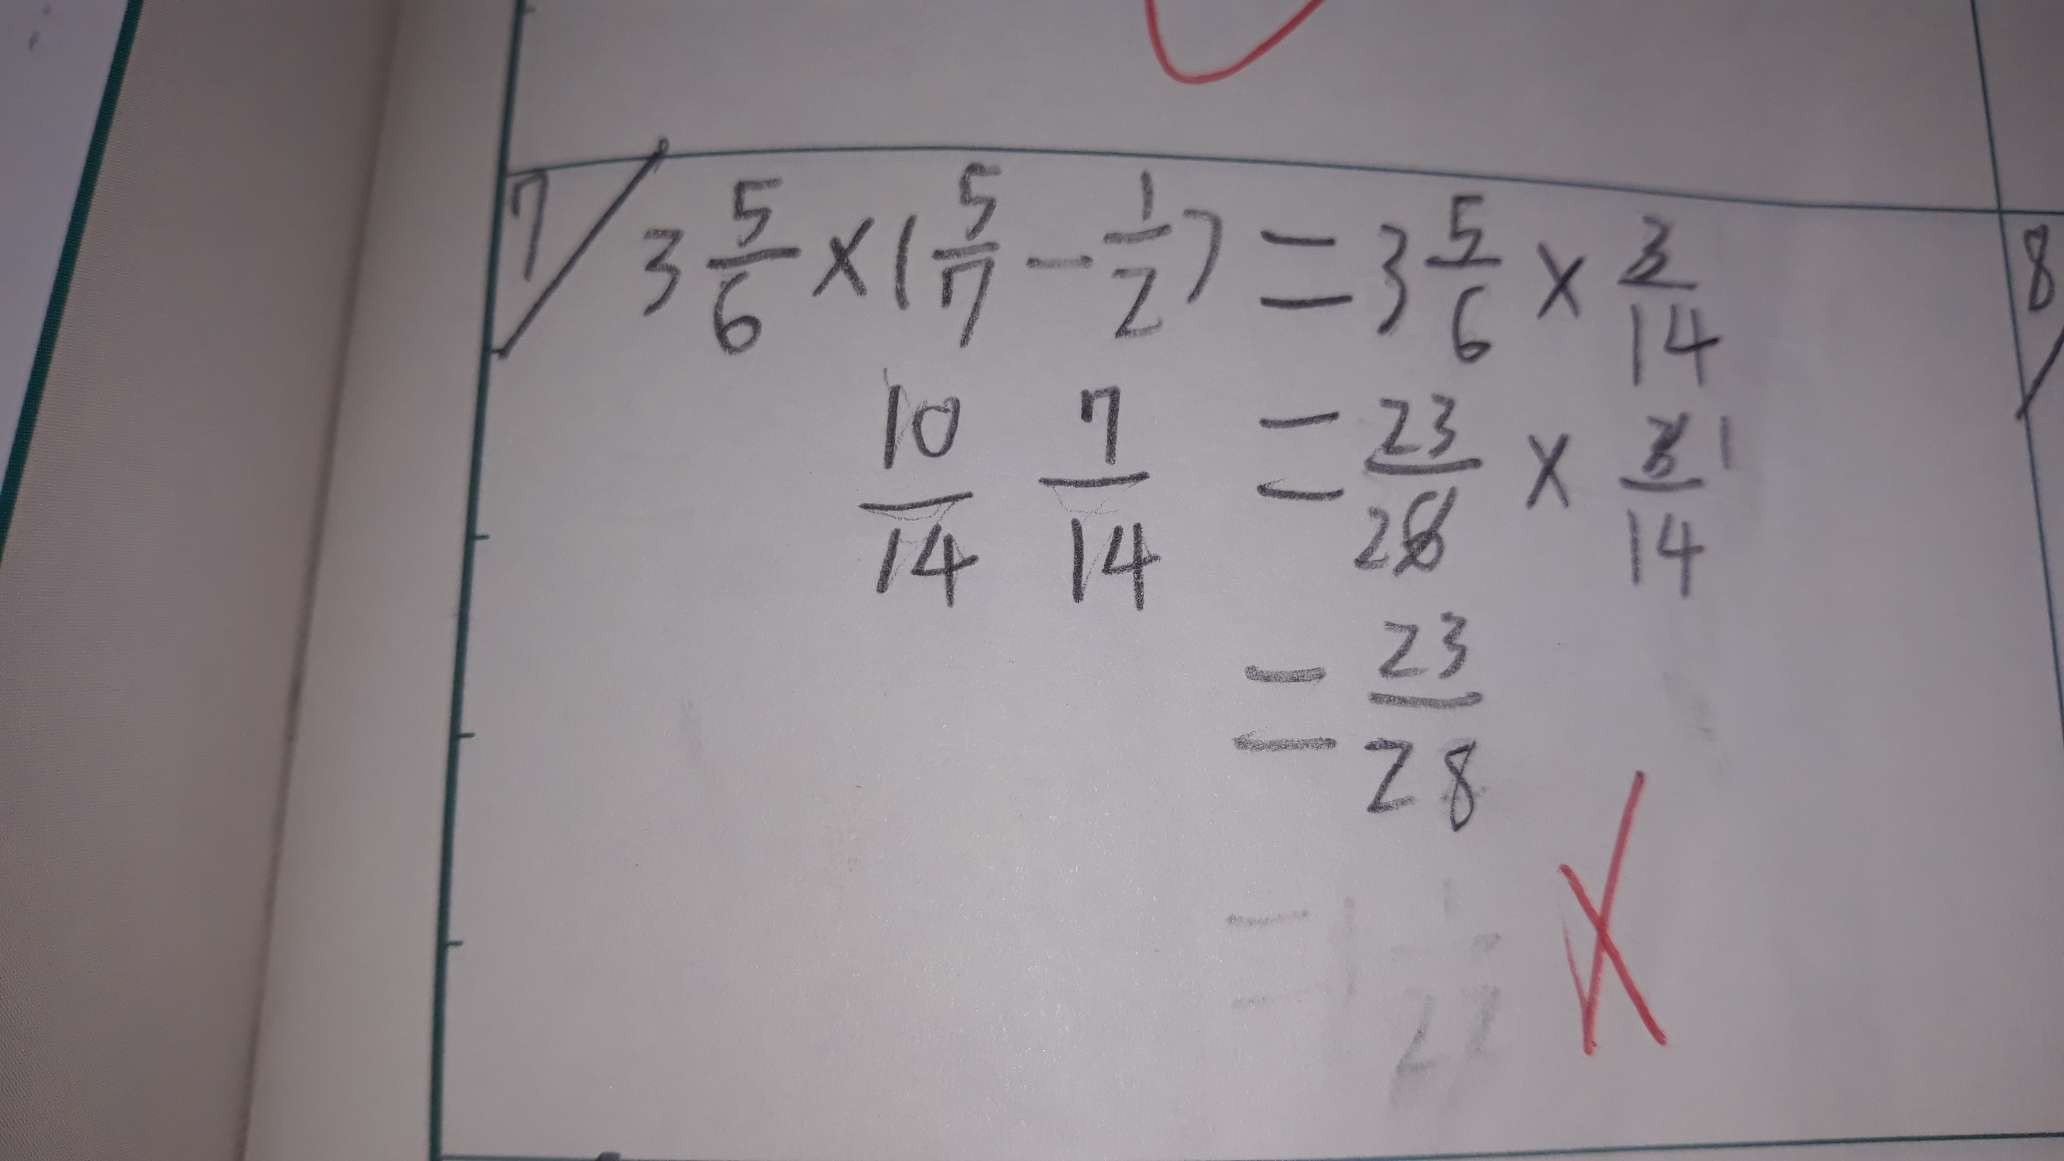 7
3 5/6 × (5/7 - 1/2) = 3 5/6 × 3/14
10/14 7/14 = 23/26 × 3/14 1
= 23/28
8